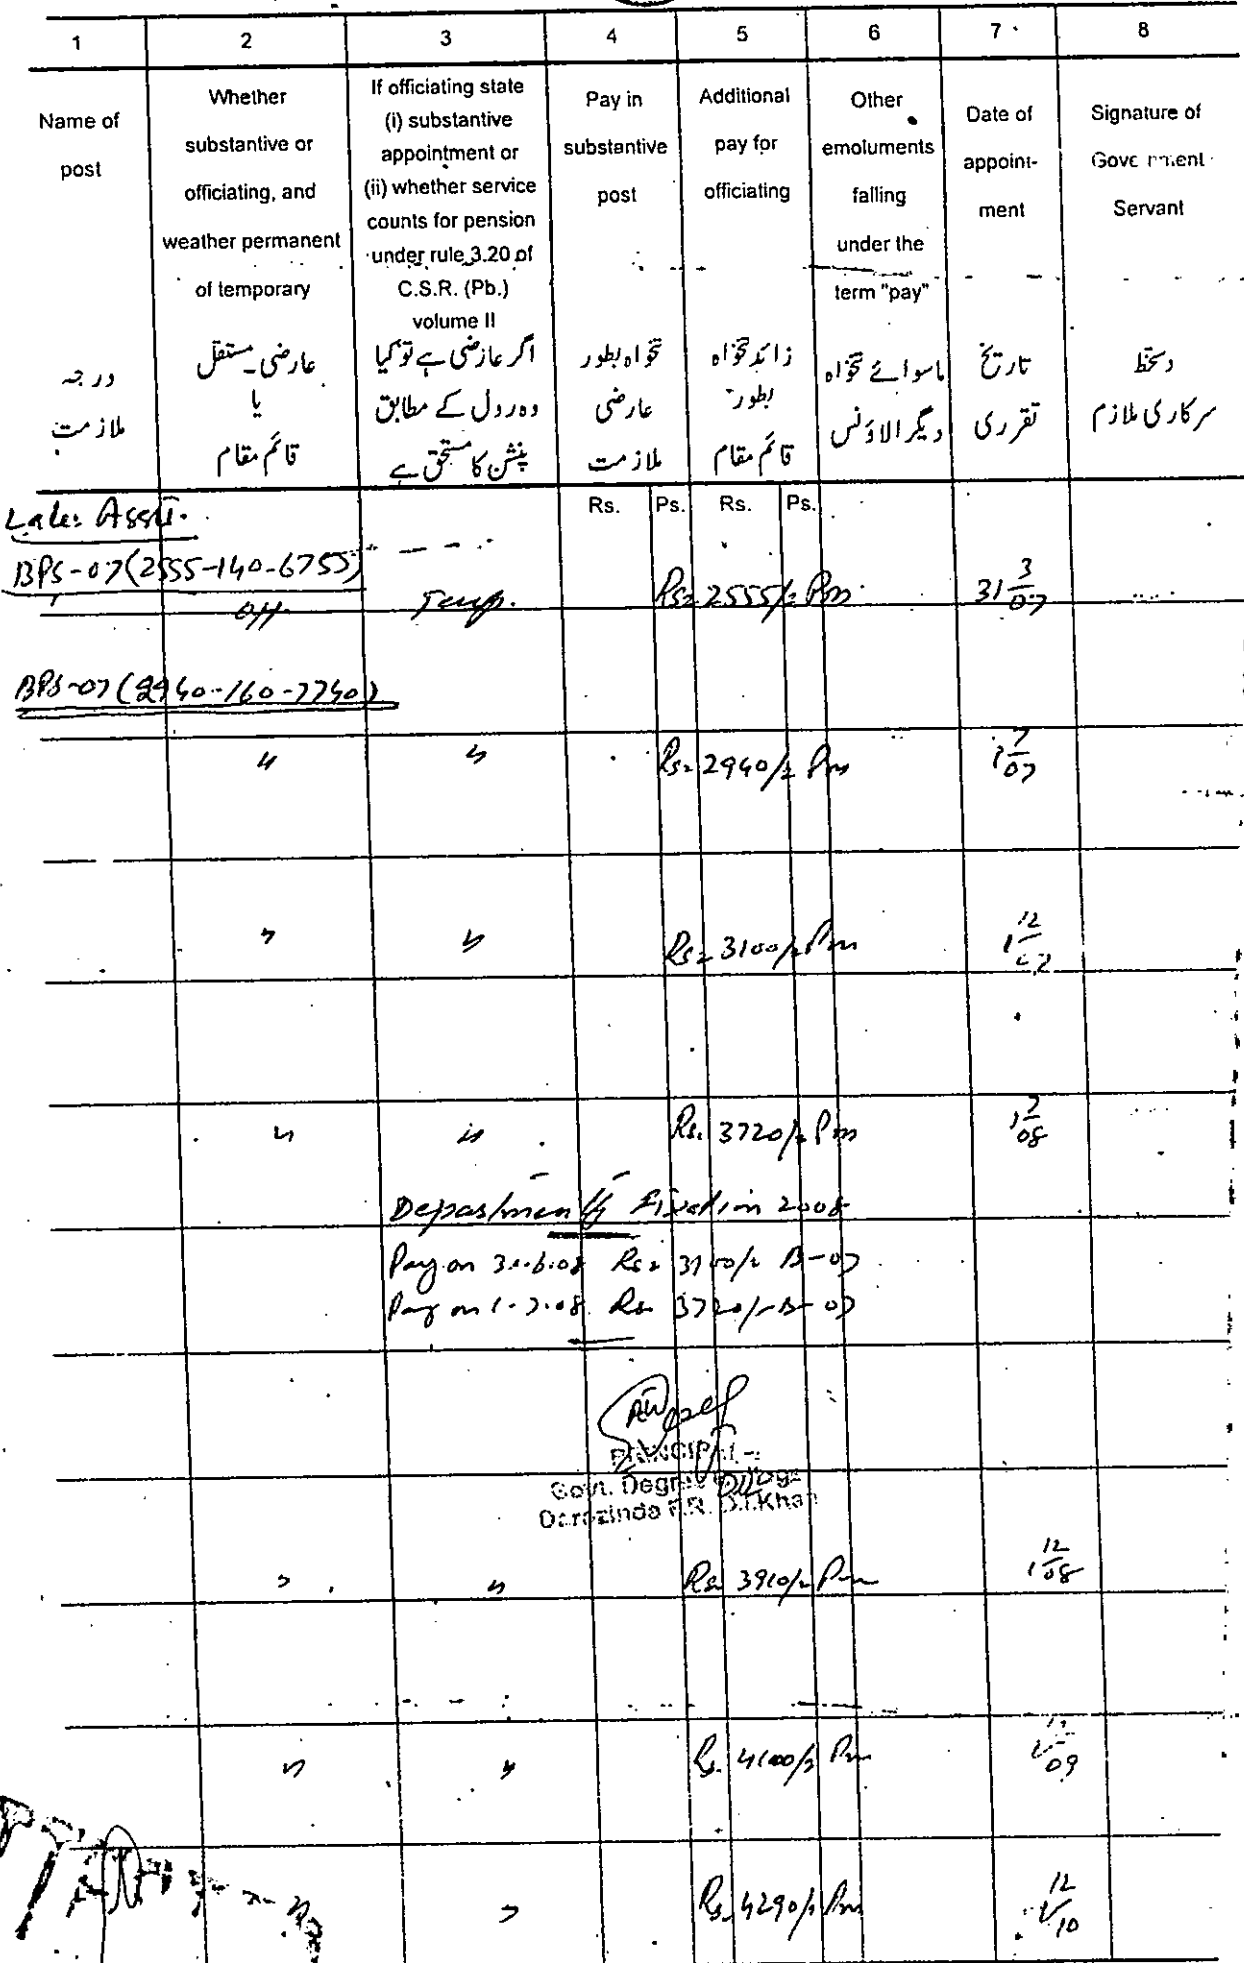 1 2 3 4 5 6 7 8
Name of
post
Whether
substantive or
officiating, and
weather permanent
of temporary
If officiating state
(i) substantive
appointment or
(ii) whether service
counts for pension
under rule 3.20 of
C.S.R. (Pb.)
volume II
Pay in
substantive
post
Additional
pay for
officiating
Other
emoluments
falling
under the
term "pay"
Date of
appoint-
ment
Signature of
Government
Servant
درجہ
ملازمت
عارضی۔مستقل
یا
قائم مقام
اگر عارضی ہے تو کیا
وہ رول کے مطابق
پنشن کا مستحق ہے
تنخواہ بطور
عارضی
ملازمت
زائد تنخواہ
بطور
قائم مقام
ماسوائے تنخواہ
دیگر الاؤنس
تاریخ
تقرری
دستخط
سرکاری ملازم
Rs. Ps. Rs. Ps.
Asstt.
BPS-07(2555-140-6755)
Off. Temp. Rs= 2555/= Pm 31 3/07
BPS-07(2940-160-7740)
" " Rs= 2940/= Pm 1 7/07
" " Rs= 3100/= Pm 1 12/07
" " Rs. 3720/= Pm 1 7/08
Fixation 2008
Pay on 30.6.08 Rs= 3100/= B-07
Pay on 1.7.08 Rs. 3720/- B-07
PRINCIPAL
Govt. Degree College
Darazinda F.R. D.I.Khan
" " Rs= 3910/= Pm 1 12/08
" " Rs. 4100/= Pm 1 12/09
" " Rs. 4290/= Pm 1 12/10